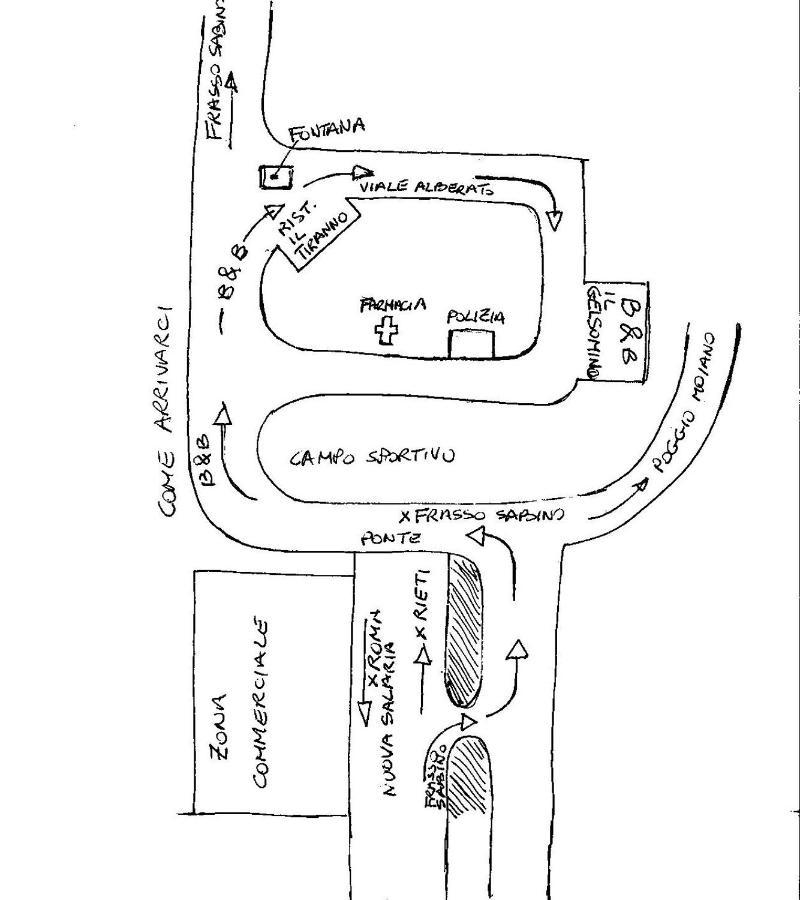 FRASSO SABINO
FONTANA
VIALE ALBERATO
RIST.
IL
TIRANNO
B & B
FARMACIA
POLIZIA
B & B
IL
GELSOMINO
COME ARRIVARCI
B&B
CAMPO SPORTIVO
POGGIO MOIANO
X FRASSO SABINO
PONTE
X RIETI
X ROMA
NUOVA SALARIA
FRASSO
SABINO
ZONA
COMMERCIALE